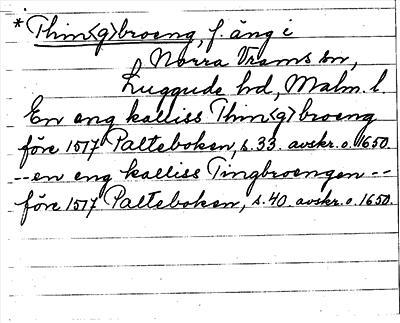 *Thin<g>broeng, f. äng i
Norra Vrams sn,
Luggude hd, Malm. l.
En eng kalliss Thin<g>broeng
före 1517 Palteboken, s. 33. avskr. o. 1650.
--en eng kalliss Tingbroengen--
före 1517 Palteboken, s. 40. avskr. o. 1650.